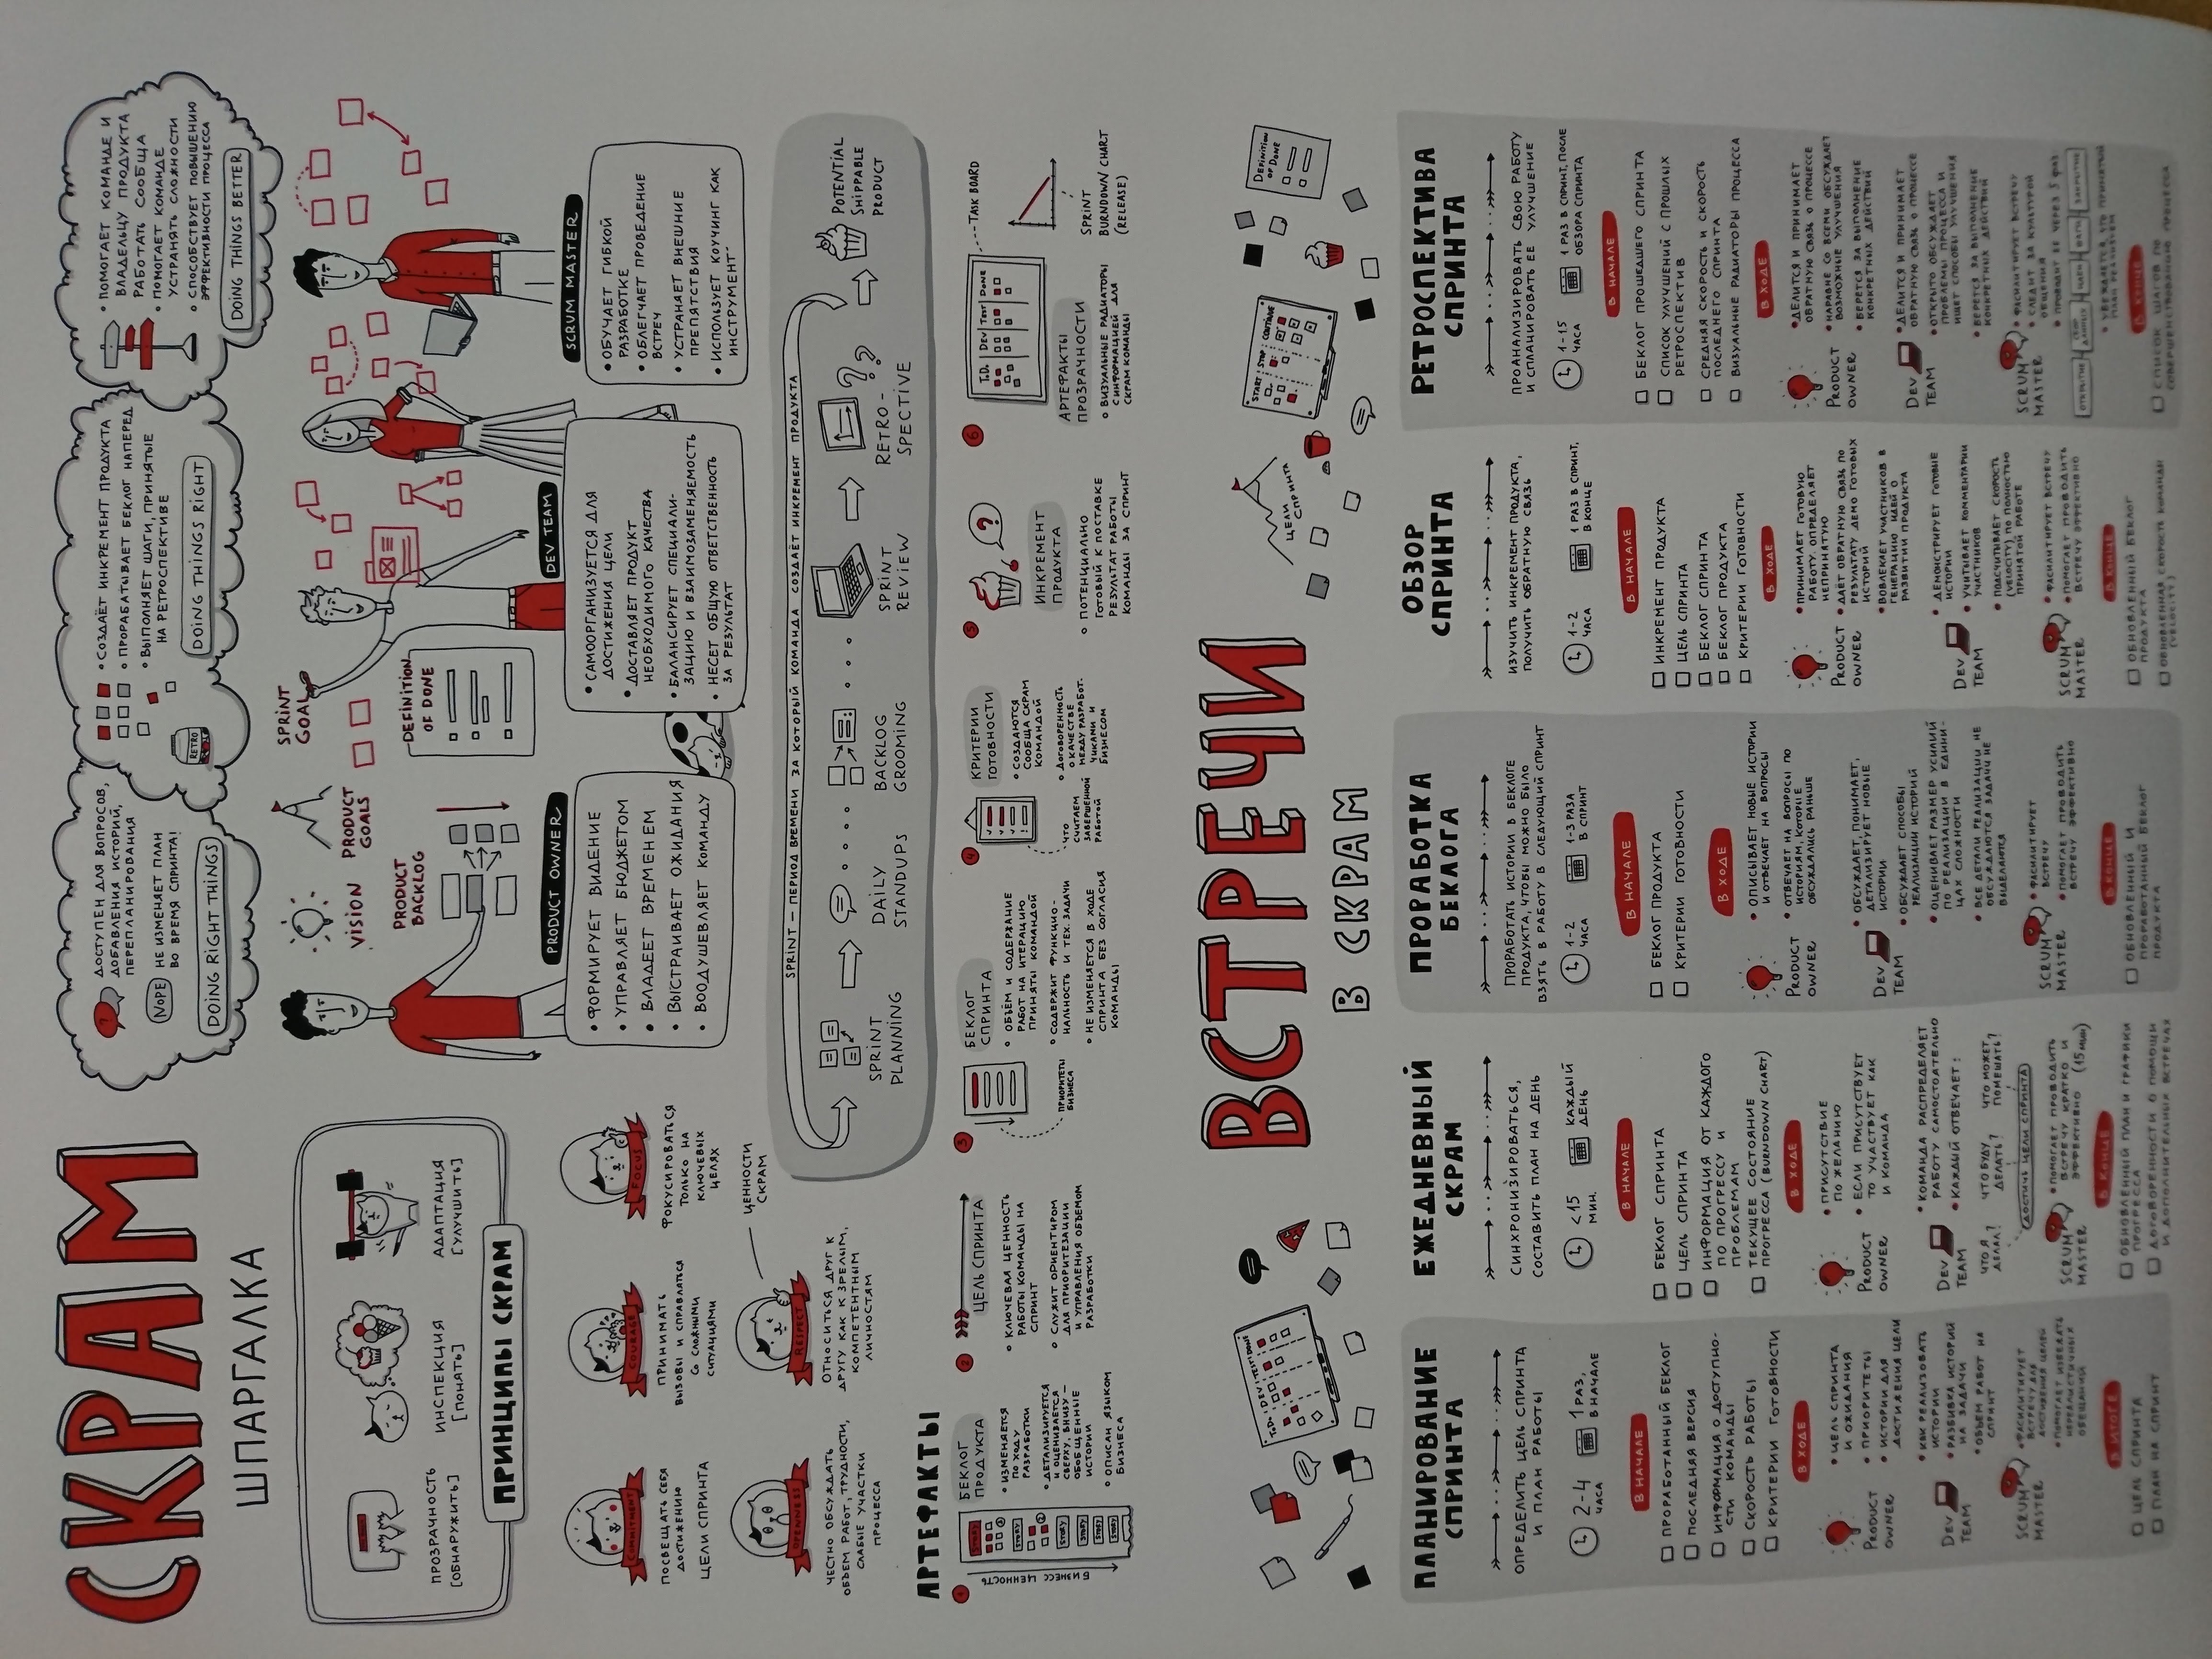 СКРАМ
ШПАРГАЛКА
ДОСТУПЕН ДЛЯ ВОПРОСОВ,
ДОБАВЛЕНИЯ ИСТОРИЙ,
ПЕРЕПЛАНИРОВАНИЯ
NOPE
НЕ ИЗМЕНЯЕТ ПЛАН
ВО ВРЕМЯ СПРИНТА!
DOING RIGHT THINGS
• СОЗДАЁТ ИНКРЕМЕНТ ПРОДУКТА
• ПРОРАБАТЫВАЕТ БЕКЛОГ НАПЕРЕД
• ВЫПОЛНЯЕТ ШАГИ, ПРИНЯТЫЕ
НА РЕТРОСПЕКТИВЕ
RETRO
DOING THINGS RIGHT
• ПОМОГАЕТ КОМАНДЕ И
ВЛАДЕЛЬЦУ ПРОДУКТА
РАБОТАТЬ СООБЩА
• ПОМОГАЕТ КОМАНДЕ
УСТРАНЯТЬ СЛОЖНОСТИ
• СПОСОБСТВУЕТ ПОВЫШЕНИЮ
ЭФФЕКТИВНОСТИ ПРОЦЕССА
DOING THINGS BETTER
ПРОЗРАЧНОСТЬ
[ОБНАРУЖИТЬ]
ИНСПЕКЦИЯ
[ПОНЯТЬ]
АДАПТАЦИЯ
[УЛУЧШИТЬ]
ПРИНЦИПЫ СКРАМ
VISION
PRODUCT
GOALS
SPRINT
GOAL
PRODUCT
BACKLOG
DEFINITION
OF DONE
PRODUCT OWNER
• ФОРМИРУЕТ ВИДЕНИЕ
• УПРАВЛЯЕТ БЮДЖЕТОМ
• ВЛАДЕЕТ ВРЕМЕНЕМ
• ВЫСТРАИВАЕТ ОЖИДАНИЯ
• ВООДУШЕВЛЯЕТ КОМАНДУ
DEV TEAM
• САМООРГАНИЗУЕТСЯ ДЛЯ
ДОСТИЖЕНИЯ ЦЕЛИ
• ДОСТАВЛЯЕТ ПРОДУКТ
НЕОБХОДИМОГО КАЧЕСТВА
• БАЛАНСИРУЕТ СПЕЦИАЛИ-
ЗАЦИЮ И ВЗАИМОЗАМЕНЯЕМОСТЬ
• НЕСЕТ ОБЩУЮ ОТВЕТСТВЕННОСТЬ
ЗА РЕЗУЛЬТАТ
SCRUM MASTER
• ОБУЧАЕТ ГИБКОЙ
РАЗРАБОТКЕ
• ОБЛЕГЧАЕТ ПРОВЕДЕНИЕ
ВСТРЕЧ
• УСТРАНЯЕТ ВНЕШНИЕ
ПРЕПЯТСТВИЯ
• ИСПОЛЬЗУЕТ КОУЧИНГ КАК
ИНСТРУМЕНТ
COMMITMENT
ПОСВЕЩАТЬ СЕБЯ
ДОСТИЖЕНИЮ
ЦЕЛИ СПРИНТА
COURAGE
ПРИНИМАТЬ
ВЫЗОВЫ И СПРАВЛЯТЬСЯ
СО СЛОЖНЫМИ
СИТУАЦИЯМИ
FOCUS
ФОКУСИРОВАТЬСЯ
ТОЛЬКО НА
КЛЮЧЕВЫХ
ЦЕЛЯХ
OPENNESS
ЧЕСТНО ОБСУЖДАТЬ
ОБЪЕМ РАБОТ, ТРУДНОСТИ,
СЛАБЫЕ УЧАСТКИ
ПРОЦЕССА
RESPECT
ОТНОСИТЬСЯ ДРУГ К
ДРУГУ КАК К ЗРЕЛЫМ,
КОМПЕТЕНТНЫМ
ЛИЧНОСТЯМ
ЦЕННОСТИ
СКРАМ
SPRINT — ПЕРИОД ВРЕМЕНИ ЗА КОТОРЫЙ КОМАНДА СОЗДАЁТ ИНКРЕМЕНТ ПРОДУКТА
SPRINT
PLANNING
DAILY
STANDUPS
BACKLOG
GROOMING
SPRINT
REVIEW
RETRO-
SPECTIVE
POTENTIAL
SHIPPABLE
PRODUCT
АРТЕФАКТЫ
1
БИЗНЕС ЦЕННОСТЬ
STORY
STORY
STORY
STORY
STORY
STORY
БЕКЛОГ
ПРОДУКТА
• ИЗМЕНЯЕТСЯ
ПО ХОДУ
РАЗРАБОТКИ
• ДЕТАЛИЗИРУЕТСЯ
И ОЦЕНИВАЕТСЯ
СВЕРХУ, ВНИЗУ —
ОБОБЩЕННЫЕ
ИСТОРИИ
• ОПИСАН ЯЗЫКОМ
БИЗНЕСА
2
ЦЕЛЬ СПРИНТА
• КЛЮЧЕВАЯ ЦЕННОСТЬ
РАБОТЫ КОМАНДЫ НА
СПРИНТ
• СЛУЖИТ ОРИЕНТИРОМ
ДЛЯ ПРИОРИТЕЗАЦИИ
И УПРАВЛЕНИЯ ОБЪЕМОМ
РАЗРАБОТКИ
3
БЕКЛОГ
СПРИНТА
ПРИОРИТЕТЫ
БИЗНЕСА
• ОБЪЁМ И СОДЕРЖАНИЕ
РАБОТ НА ИТЕРАЦИЮ
ПРИНЯТЫ КОМАНДОЙ
• СОДЕРЖИТ ФУНКЦИО-
НАЛЬНОСТЬ И ТЕХ. ЗАДАЧИ
• НЕ ИЗМЕНЯЕТСЯ В ХОДЕ
СПРИНТА БЕЗ СОГЛАСИЯ
КОМАНДЫ
4
КРИТЕРИИ
ГОТОВНОСТИ
ЧТО
СЧИТАЕМ
ЗАВЕРШЕННОЙ
РАБОТОЙ
• СОЗДАЮТСЯ
СООБЩА СКРАМ
КОМАНДОЙ
• ДОГОВОРЕННОСТЬ
О КАЧЕСТВЕ
МЕЖДУ РАЗРАБОТ-
ЧИКАМИ И
БИЗНЕСОМ
5
ИНКРЕМЕНТ
ПРОДУКТА
• ПОТЕНЦИАЛЬНО
ГОТОВЫЙ К ПОСТАВКЕ
РЕЗУЛЬТАТ РАБОТЫ
КОМАНДЫ ЗА СПРИНТ
6
TO DO DEV TEST DONE
TASK BOARD
АРТЕФАКТЫ
ПРОЗРАЧНОСТИ
• ВИЗУАЛЬНЫЕ РАДИАТОРЫ
С ИНФОРМАЦИЕЙ ДЛЯ
СКРАМ КОМАНДЫ
SPRINT
BURNDOWN CHART
(RELEASE)
ВСТРЕЧИ
В СКРАМ
TO DO DEV TEST DONE
ЦЕЛИ
СПРИНТА
START STOP CONTINUE
DEFINITION
OF DONE
ПЛАНИРОВАНИЕ
СПРИНТА
ОПРЕДЕЛИТЬ ЦЕЛЬ СПРИНТА
И ПЛАН РАБОТЫ
2-4
ЧАСА
1 РАЗ,
В НАЧАЛЕ
В НАЧАЛЕ
ПРОРАБОТАННЫЙ БЕКЛОГ
ПОСЛЕДНЯЯ ВЕРСИЯ
ИНФОРМАЦИЯ О ДОСТУПНО-
СТИ КОМАНДЫ
СКОРОСТЬ РАБОТЫ
КРИТЕРИИ ГОТОВНОСТИ
В ХОДЕ
PRODUCT
OWNER
• ЦЕЛЬ СПРИНТА
И ОЖИДАНИЯ
• ПРИОРИТЕТЫ
• ИСТОРИИ ДЛЯ
ДОСТИЖЕНИЯ ЦЕЛИ
DEV
TEAM
• КАК РЕАЛИЗОВАТЬ
ИСТОРИИ
• РАЗБИВКА ИСТОРИЙ
НА ЗАДАЧИ
• ОБЪЕМ РАБОТ НА
СПРИНТ
SCRUM
MASTER
• ФАСИЛИТИРУЕТ
ВСТРЕЧУ ДЛЯ
ДОСТИЖЕНИЯ ЦЕЛЕЙ
• ПОМОГАЕТ ИЗБЕЖАТЬ
НЕРЕАЛИСТИЧНЫХ
ОБЕЩАНИЙ
В ИТОГЕ
ЦЕЛЬ СПРИНТА
ПЛАН НА СПРИНТ
ЕЖЕДНЕВНЫЙ
СКРАМ
СИНХРОНИЗИРОВАТЬСЯ,
СОСТАВИТЬ ПЛАН НА ДЕНЬ
<15
МИН.
КАЖДЫЙ
ДЕНЬ
В НАЧАЛЕ
БЕКЛОГ СПРИНТА
ЦЕЛЬ СПРИНТА
ИНФОРМАЦИЯ ОТ КАЖДОГО
ПО ПРОГРЕССУ И
ПРОБЛЕМАМ
ТЕКУЩЕЕ СОСТОЯНИЕ
ПРОГРЕССА (BURNDOWN CHART)
В ХОДЕ
PRODUCT
OWNER
• ПРИСУТСТВИЕ
ПО ЖЕЛАНИЮ
• ЕСЛИ ПРИСУТСТВУЕТ
ТО УЧАСТВУЕТ КАК
И КОМАНДА
DEV
TEAM
• КОМАНДА РАСПРЕДЕЛЯЕТ
РАБОТУ САМОСТОЯТЕЛЬНО
• КАЖДЫЙ ОТВЕЧАЕТ:
ЧТО Я
ДЕЛАЛ?
ЧТО БУДУ
ДЕЛАТЬ?
ЧТО МОЖЕТ
ПОМЕШАТЬ?
ДОСТИЧЬ ЦЕЛИ СПРИНТА
SCRUM
MASTER
• ПОМОГАЕТ ПРОВОДИТЬ
ВСТРЕЧУ КРАТКО И
ЭФФЕКТИВНО (15 МИН)
В КОНЦЕ
ОБНОВЛЕННЫЙ ПЛАН И ГРАФИКИ
ПРОГРЕССА
ДОГОВОРЕННОСТИ О ПОМОЩИ
И ДОПОЛНИТЕЛЬНЫХ ВСТРЕЧАХ
ПРОРАБОТКА
БЕКЛОГА
ПРОРАБОТАТЬ ИСТОРИИ В БЕКЛОГЕ
ПРОДУКТА, ЧТОБЫ МОЖНО БЫЛО
ВЗЯТЬ В РАБОТУ В СЛЕДУЮЩИЙ СПРИНТ
1-2
ЧАСА
1-3 РАЗА
В СПРИНТ
В НАЧАЛЕ
БЕКЛОГ ПРОДУКТА
КРИТЕРИИ ГОТОВНОСТИ
В ХОДЕ
PRODUCT
OWNER
• ОПИСЫВАЕТ НОВЫЕ ИСТОРИИ
И ОТВЕЧАЕТ НА ВОПРОСЫ
• ОТВЕЧАЕТ НА ВОПРОСЫ ПО
ИСТОРИЯМ, КОТОРЫЕ
ОБСУЖДАЛИСЬ РАНЬШЕ
DEV
TEAM
• ОБСУЖДАЕТ, ПОНИМАЕТ,
ДЕТАЛИЗИРУЕТ НОВЫЕ
ИСТОРИИ
• ОБСУЖДАЕТ СПОСОБЫ
РЕАЛИЗАЦИИ ИСТОРИЙ
• ОЦЕНИВАЕТ РАЗМЕР УСИЛИЙ
ПО РЕАЛИЗАЦИИ В ЕДИНИ-
ЦАХ СЛОЖНОСТИ
• ВСЕ ДЕТАЛИ РЕАЛИЗАЦИИ НЕ
ОБСУЖДАЮТСЯ ЗАДАЧИ НЕ
ВЫДЕЛЯЮТСЯ
SCRUM
MASTER
• ФАСИЛИТИРУЕТ
ВСТРЕЧУ
• ПОМОГАЕТ ПРОВОДИТЬ
ВСТРЕЧУ ЭФФЕКТИВНО
В КОНЦЕ
ОБНОВЛЕННЫЙ И
ПРОРАБОТАННЫЙ БЕКЛОГ
ПРОДУКТА
ОБЗОР
СПРИНТА
ИЗУЧИТЬ ИНКРЕМЕНТ ПРОДУКТА,
ПОЛУЧИТЬ ОБРАТНУЮ СВЯЗЬ
1-2
ЧАСА
1 РАЗ В СПРИНТ,
В КОНЦЕ
В НАЧАЛЕ
ИНКРЕМЕНТ ПРОДУКТА
ЦЕЛЬ СПРИНТА
БЕКЛОГ СПРИНТА
БЕКЛОГ ПРОДУКТА
КРИТЕРИИ ГОТОВНОСТИ
В ХОДЕ
PRODUCT
OWNER
• ПРИНИМАЕТ ГОТОВУЮ
РАБОТУ. ОПРЕДЕЛЯЕТ
НЕПРИНЯТУЮ
• ДАЁТ ОБРАТНУЮ СВЯЗЬ ПО
РЕЗУЛЬТАТУ ДЕМО ГОТОВЫХ
ИСТОРИЙ
• ВОВЛЕКАЕТ УЧАСТНИКОВ В
ГЕНЕРАЦИЮ ИДЕЙ О
РАЗВИТИИ ПРОДУКТА
DEV
TEAM
• ДЕМОНСТРИРУЕТ ГОТОВЫЕ
ИСТОРИИ
• УЧИТЫВАЕТ КОММЕНТАРИИ
УЧАСТНИКОВ
• ПОДСЧИТЫВАЕТ СКОРОСТЬ
(VELOCITY) ПО ПОЛНОСТЬЮ
ПРИНЯТОЙ РАБОТЕ
SCRUM
MASTER
• ФАСИЛИТИРУЕТ ВСТРЕЧУ
• ПОМОГАЕТ ПРОВОДИТЬ
ВСТРЕЧУ ЭФФЕКТИВНО
В КОНЦЕ
ОБНОВЛЕННЫЙ БЕКЛОГ
ПРОДУКТА
ОБНОВЛЕННАЯ СКОРОСТЬ КОМАНДЫ
(VELOCITY)
РЕТРОСПЕКТИВА
СПРИНТА
ПРОАНАЛИЗИРОВАТЬ СВОЮ РАБОТУ
И СПЛАНИРОВАТЬ ЕЕ УЛУЧШЕНИЕ
1-1.5
ЧАСА
1 РАЗ В СПРИНТ, ПОСЛЕ
ОБЗОРА СПРИНТА
В НАЧАЛЕ
БЕКЛОГ ПРОШЕДШЕГО СПРИНТА
СПИСОК УЛУЧШЕНИЙ С ПРОШЛЫХ
РЕТРОСПЕКТИВ
СРЕДНЯЯ СКОРОСТЬ И СКОРОСТЬ
ПОСЛЕДНЕГО СПРИНТА
ВИЗУАЛЬНЫЕ РАДИАТОРЫ ПРОЦЕССА
В ХОДЕ
PRODUCT
OWNER
• ДЕЛИТСЯ И ПРИНИМАЕТ
ОБРАТНУЮ СВЯЗЬ О ПРОЦЕССЕ
• НАРАВНЕ СО ВСЕМИ ОБСУЖДАЕТ
ВОЗМОЖНЫЕ УЛУЧШЕНИЯ
• БЕРЕТСЯ ЗА ВЫПОЛНЕНИЕ
КОНКРЕТНЫХ ДЕЙСТВИЙ
DEV
TEAM
• ДЕЛИТСЯ И ПРИНИМАЕТ
ОБРАТНУЮ СВЯЗЬ О ПРОЦЕССЕ
• ОТКРЫТО ОБСУЖДАЕТ
ПРОБЛЕМЫ ПРОЦЕССА И
ИЩЕТ СПОСОБЫ УЛУЧШЕНИЯ
• БЕРЕТСЯ ЗА ВЫПОЛНЕНИЕ
КОНКРЕТНЫХ ДЕЙСТВИЙ
SCRUM
MASTER
• ФАСИЛИТИРУЕТ ВСТРЕЧУ
• СЛЕДИТ ЗА КУЛЬТУРОЙ
ОБЩЕНИЯ
• ПРОВОДИТ ЕЕ ЧЕРЕЗ 5 ФАЗ
ОТКРЫТИЕ
СБОР
ДАННЫХ
ИДЕИ
ШАГИ
ЗАКРЫТИЕ
• УБЕЖДАЕТСЯ, ЧТО ПРИНЯТЫЙ
ПЛАН РЕАЛИЗУЕМ
В КОНЦЕ
СПИСОК ШАГОВ ПО
СОВЕРШЕНСТВОВАНИЮ ПРОЦЕССА